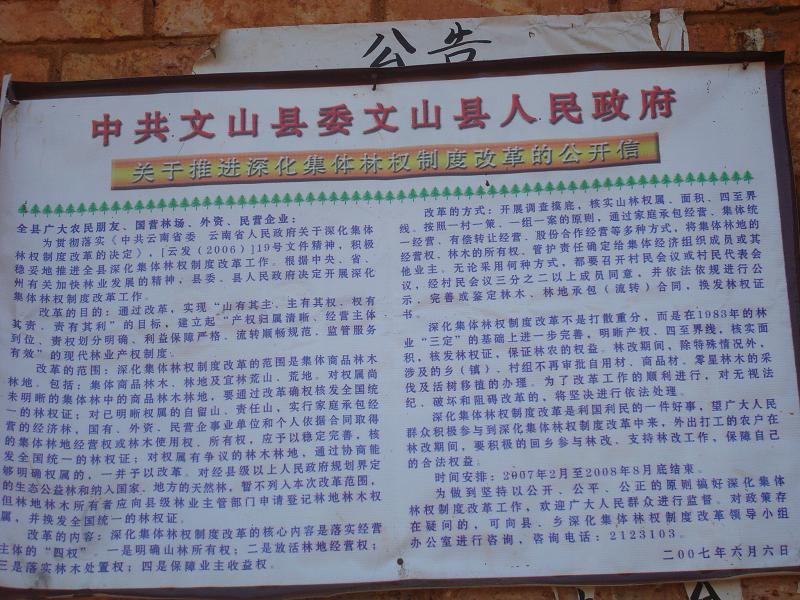 公告
中共文山县委文山县人民政府
关于推进深化集体林权制度改革的公开信
全县广大农民朋友、国营林场、外资、民营企业：
为贯彻落实《中共云南省委 云南省人民政府关于深化集体
林权制度改革的决定》，[云发（2006）]19号文件精神，积极
稳妥地推进全县深化集体林权制度改革工作。根据中央、省、
州有关加快林业发展的精神，县委、县人民政府决定开展深化
集体林权制度改革工作。
改革的目的：通过改革，实现“山有其主、主有其权、权有
其责、责有其利”的目标，建立起“产权归属清晰、经营主体
到位、责权划分明确、利益保障严格、流转顺畅规范、监管服务
有效”的现代林业产权制度。
改革的范围：深化集体林权制度改革的范围是集体商品林木
林地。包括：集体商品林木、林地及宜林荒山、荒地。对权属尚
未明晰的集体林中的商品林木林地，要通过改革确权核发全国统
一的林权证；对已明晰权属的自留山、责任山，实行家庭承包经
营的经济林，国有、外资、民营企事业单位和个人依据合同取得
的集体林地经营权或林木使用权、所有权，应予以稳定完善，核
发全国统一的林权证；对权属有争议的林木林地，通过协商能
够明确权属的，一并予以改革。对经县级以上人民政府规划界定
的生态公益林和纳入国家、地方的天然林，暂不列入本次改革范围，
但林地林木所有者应向县级林业主管部门申请登记林地林木权
属，并换发全国统一的林权证。
改革的内容：深化集体林权制度改革的核心内容是落实经营
主体的“四权”。一是明确山林所有权；二是放活林地经营权；
三是落实林木处置权；四是保障业主收益权。
改革的方式：开展调查摸底，核实山林权属、面积、四至界
线。按照一村一策、一组一案的原则，通过家庭承包经营、集体统
一经营、有偿转让经营、股份合作经营等多种方式，将集体林地的
经营权、林木的所有权、管护责任确定给集体经济组织成员或其
他业主。无论采用何种方式，都要召开村民会议或村民代表会
议，经村民会议三分之二以上成员同意，并依法依规进行公
示、完善或鉴定林木、林地承包（流转）合同，换发林权证
书。
深化集体林权制度改革不是打散重分，而是在1983年的林
业“三定”的基础上进一步完善，明晰产权、四至界线，核实面
积，核发林权证，保证林农的权益。林改期间，除特殊情况外，
涉及的乡（镇）、村组不再审批自用材、商品材、零星林木的采
伐及活树移植的办理。为了改革工作的顺利进行，对无视法
纪、破坏和阻碍改革的，将坚决进行依法处理。
深化集体林权制度改革是利国利民的一件好事，望广大人民
群众积极参与到深化集体林权制度改革中来，外出打工的农户在
林改期间，要积极的回乡参与林改、支持林改工作，保障自己
的合法权益。
时间安排：2007年2月至2008年8月底结束。
为做到坚持以公开、公平、公正的原则搞好深化集体
林权制度改革工作，欢迎广大人民群众进行监督。对政策存
在疑问的，可向县、乡深化集体林权制度改革领导小组
办公室进行咨询，咨询电话：2123103。
二〇〇七年六月六日